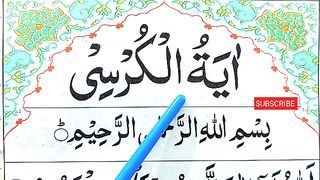 اٰيَةُ الْكُرْسِى
SUBSCRIBE
بِسْمِ اللهِ الرَّحْمٰنِ الرَّحِيْمِ